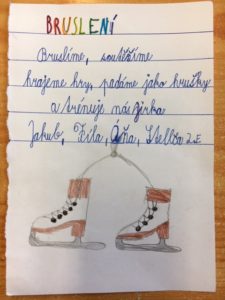 BRUSLENÍ
Bruslíme, soutěžíme
hrajeme hry, padáme jako hrušky
a trénuje nás Jirka
Jakub, Bíla, Áňa, Stella 2.E